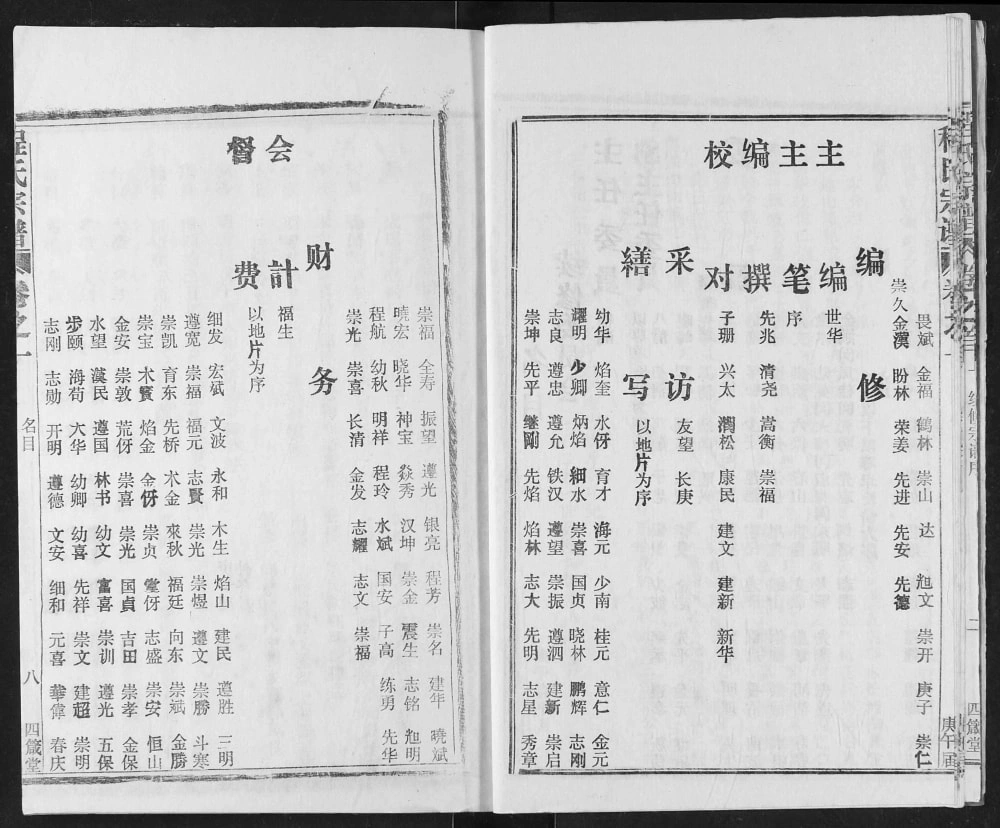 畏斌 金福 鹤林 崇山 达 旭文 崇开 庚子 崇仁
崇久 金漢 盼林 荣姜 先进 先安 先德
编修
主编
世华
主笔
序
编撰
先兆 清尧 嵩衡 崇福
校对
子珊 兴太 潤松 康民 建文 建新 新华
采访
友望 长庚
缮写
以地片为序
幼华 焰奎 水伢 育才 海元 少南 桂元 意仁 金元
耀明 少卿 炳焰 細水 崇喜 国贞 晓林 鹏辉 志刚
志良 遵忠 遵允 铁汉 遵望 崇振 遵泗 建新 崇启
崇坤 先平 继剛 先焰 焰林 志大 先明 志星 秀章
庚午
四箴堂
崇福 全寿 振望 遵光 银亮 程芳 崇名 建华 晓斌
晓宏 晓华 神宝 焱秀 汉坤 崇金 震生 志铭 旭明
程航 幼秋 明祥 程玲 水斌 国安 子高 练勇 先华
崇光 崇喜 长清 金发 志耀 志文 崇福
财务
会计
福生
督费
以地片为序
细发 宏斌 文波 永和 木生 焰山 建民 遵胜 三明
遵宽 崇福 福元 志賢 崇光 崇煜 遵文 崇勝 斗寒
崇凯 育东 先桥 术金 來秋 福廷 向东 崇斌 金勝
崇宝 术賓 焰金 金伢 崇贞 堂伢 志盛 崇安 恒山
金安 崇敦 荒伢 崇喜 崇光 国貞 吉田 崇孝 金保
水望 漢民 遵国 林书 幼文 富喜 崇训 遵光 五保
步颐 海荀 六华 幼卿 幼喜 先祥 崇文 建超 崇明
志刚 志勋 开明 遵德 文安 细和 元喜 華偉 春庆
程氏宗谱 卷之一
名目
八
四箴堂